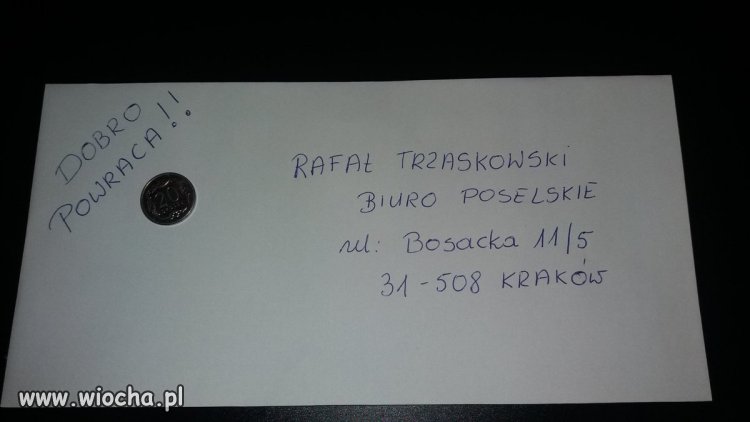 DOBRO
POWRACA!!
20
RAFAŁ TRZASKOWSKI
BIURO POSELSKIE
ul: Bosacka 11/5
31-508 KRAKÓW
www.wiocha.pl